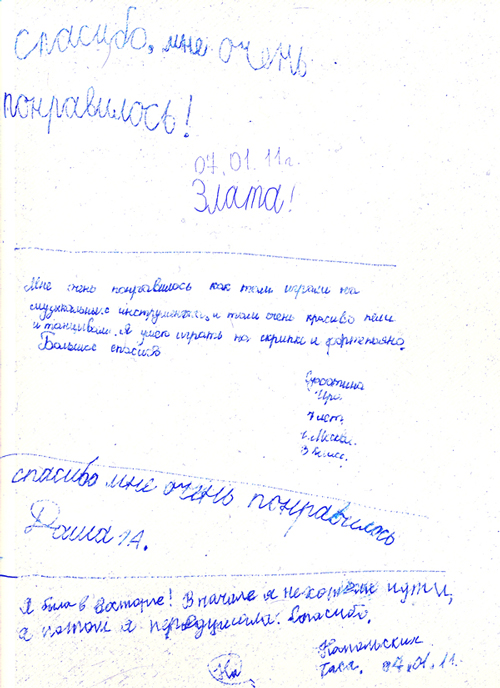 Спасибо, мне очень
понравилось!
07.01.11г.
Злата!
Мне очень понравилось как там играли на
музыкальных инструментах, и там очень красиво пели
и танцевали. Я умею играть на скрипке и фортепиано.
Большое спасибо
Ира
7 лет
г. Москва
3 класс.
спасибо мне очень понравилось
Даша
Я была в восторге! В начале я не хотела идти,
а потом я передумала. Спасибо.
07.01.11.